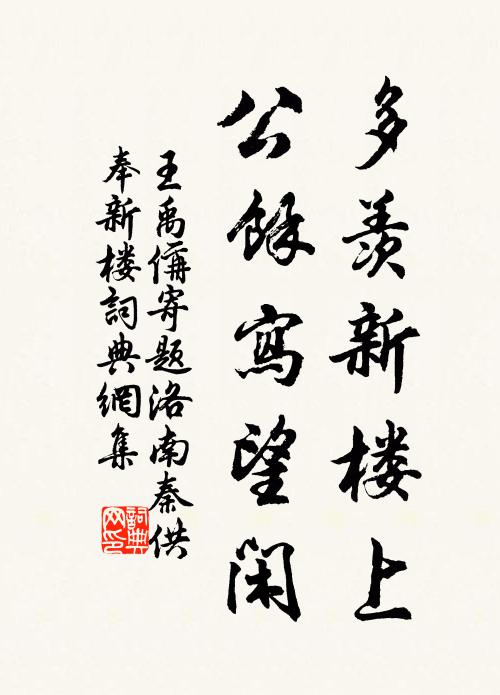 多羡新楼上
公餘寫望闲
王禹偁寄题洛南秦供
奉新楼詞典網集
詞典网印